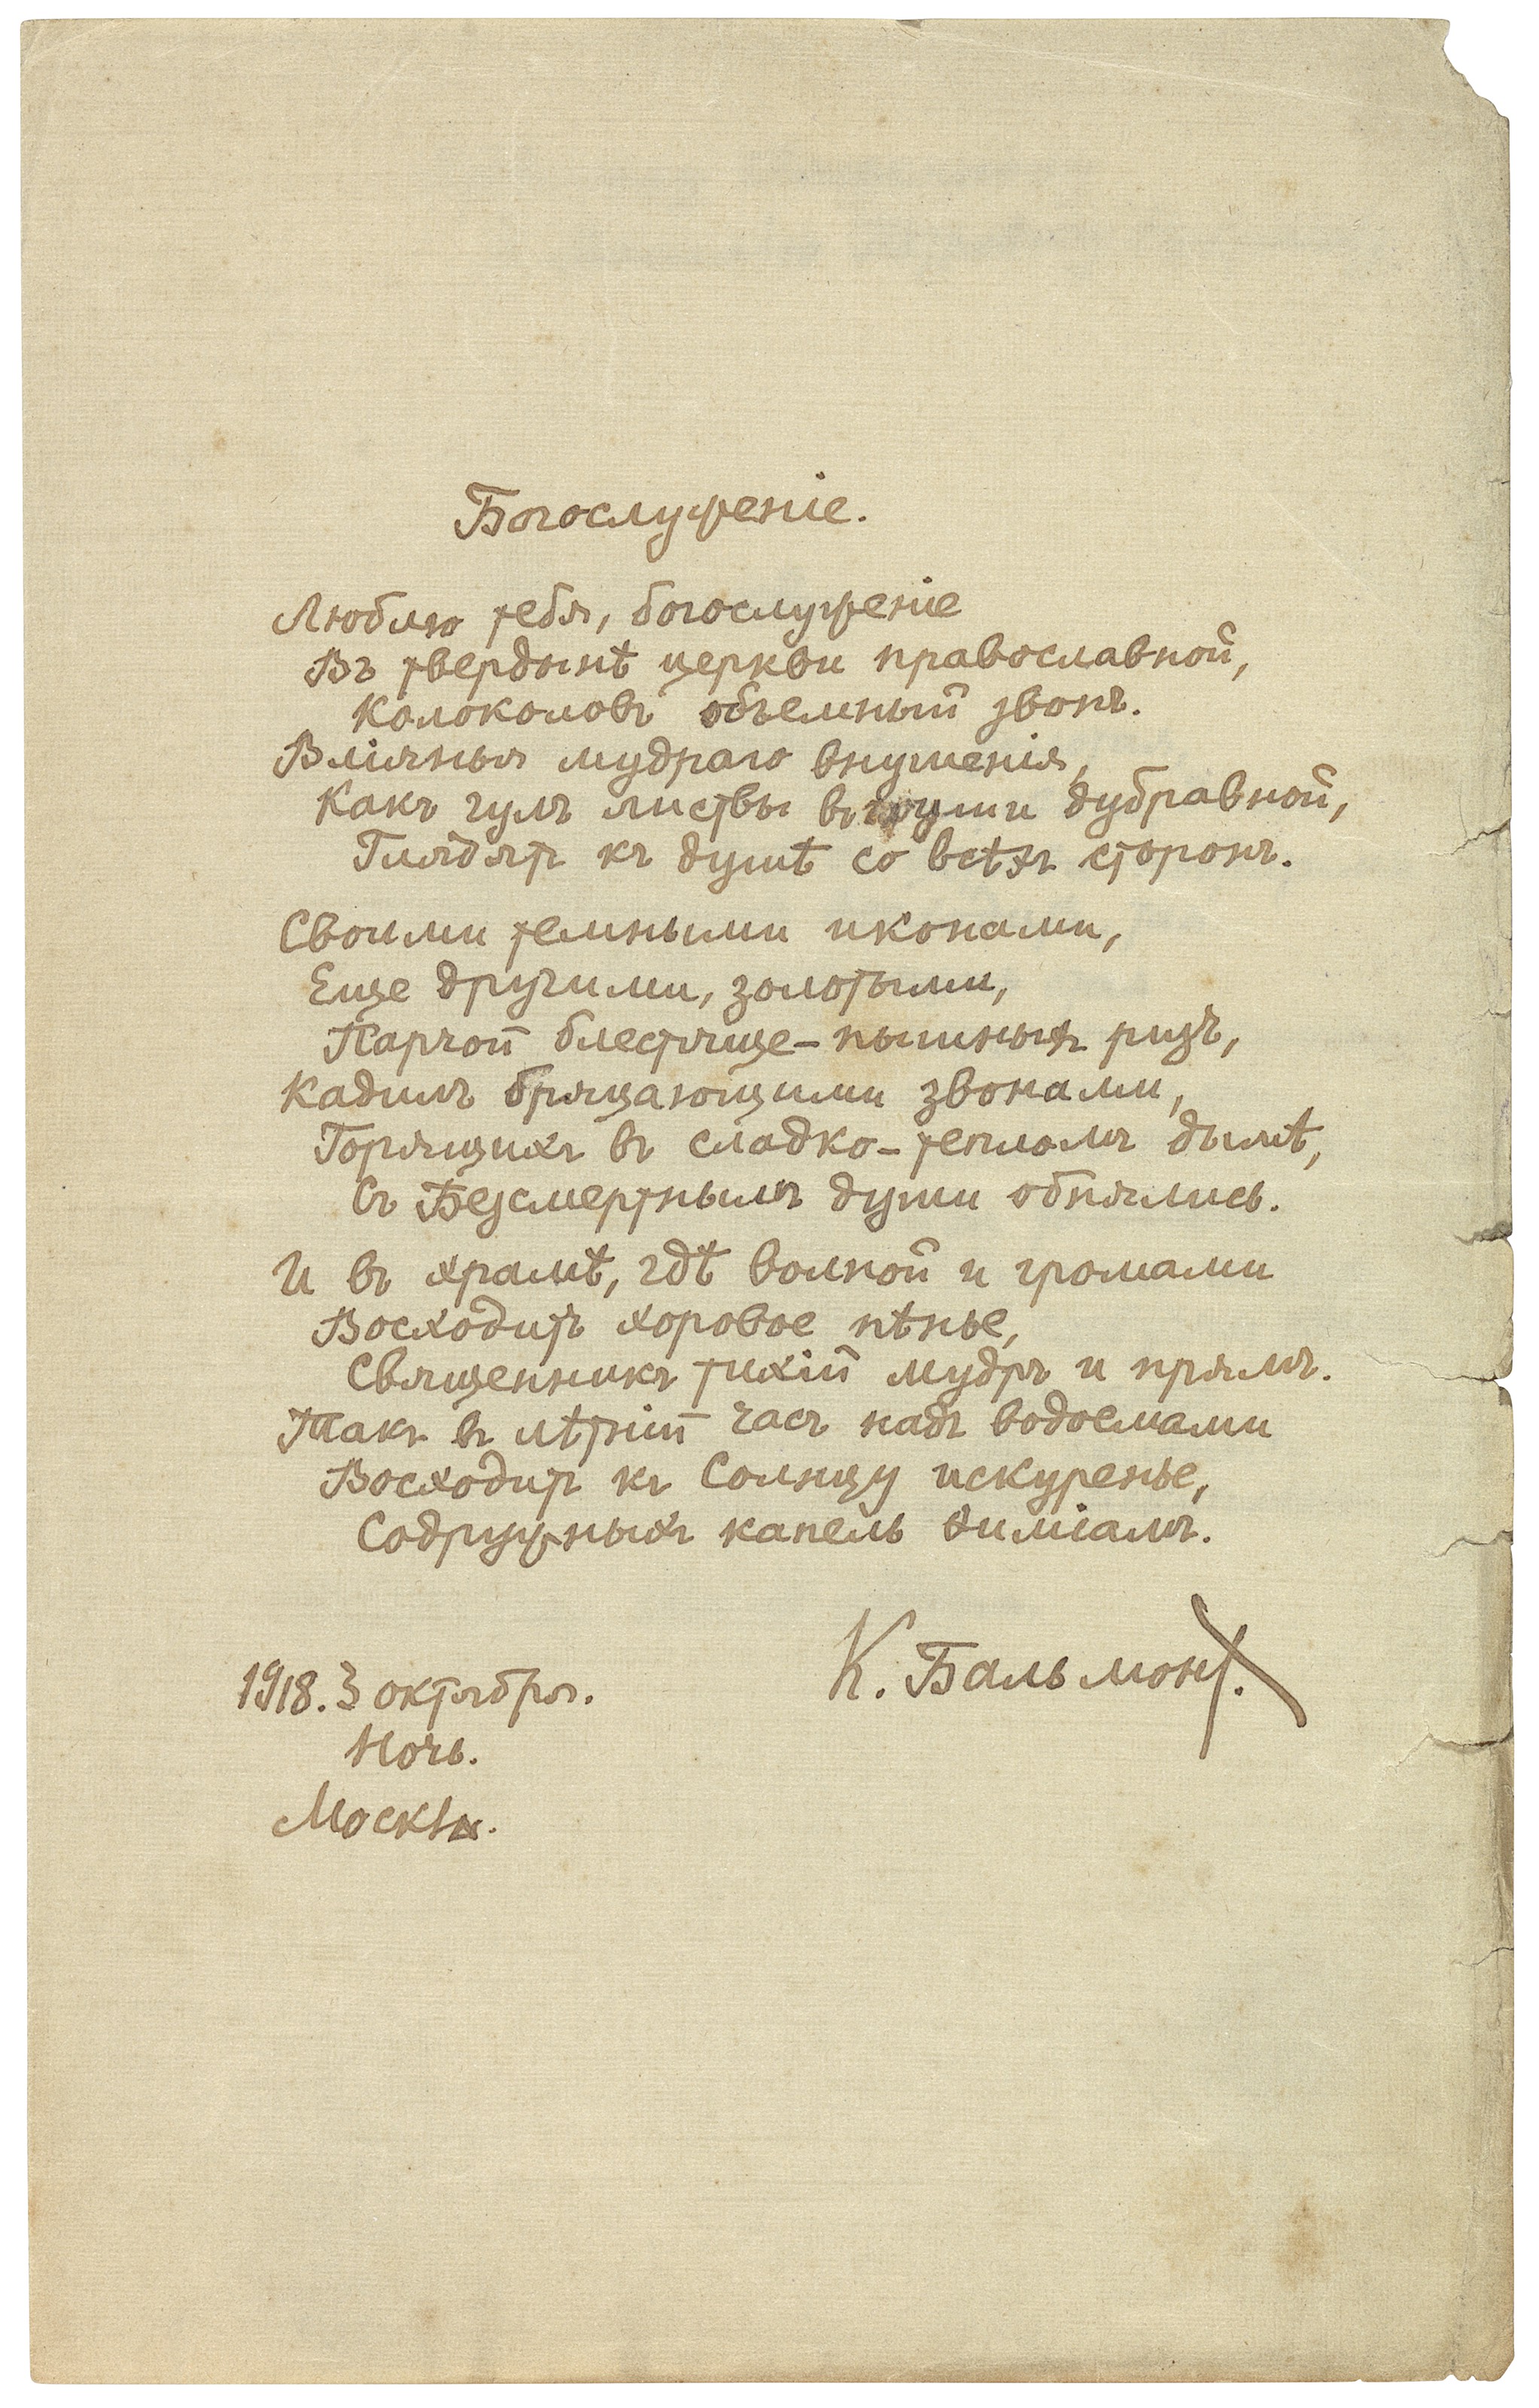 Богослуженіе.
Люблю тебя, богослуженіе
Въ твердынѣ церкви православной,
Колоколовъ объемный звонъ.
Вліянья мудраго внушенія,
Какъ гулъ листвы въ глуши дубравной,
Глядятъ къ душѣ со всѣхъ сторонъ.
Своими темными иконами,
Еще другими, золотыми,
Парчой блестяще-пышныхъ ризъ,
Кадилъ бряцающими звонами,
Горящихъ въ сладко-тепломъ дымѣ,
Съ Безсмертнымъ души обнялись.
И въ храмѣ, гдѣ волной и громами
Восходитъ хоровое пѣнье,
Священникъ тихій мудръ и прямъ.
Такъ въ лѣтній часъ надъ водоемами
Восходитъ къ Солнцу искуренье,
Содружныхъ капель ѳиміамъ.
К. Бальмонт.
1918. 3 октября.
Ночь.
Москва.